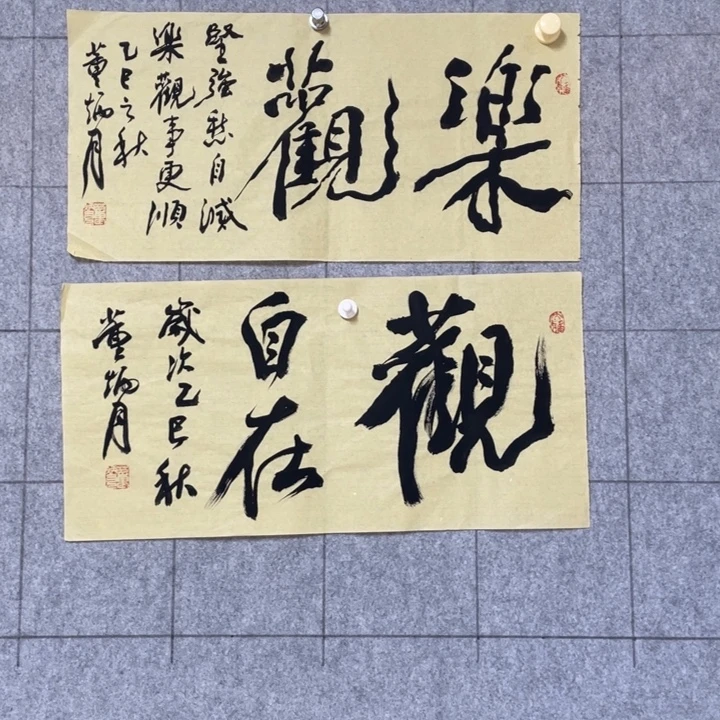 樂觀
堅強愁自減
樂觀事更順
乙巳之秋
董炳月
觀
自在
歲次乙巳秋
董炳月